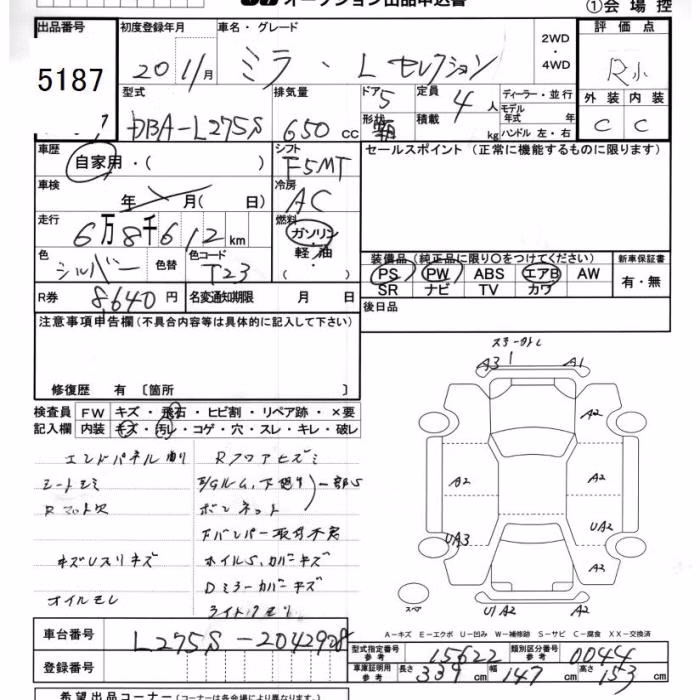 オークション出品申込書
①会場控
出品番号 初度登録年月 車名・グレード 2WD・4WD 評価点
5187 20 11月 ミラ・Lセレクション R小
型式 排気量 ドア 5 定員 4人 ディーラー・並行
DBA-L275S 650cc 形状 箱 積載 kg モデル年式 年
ハンドル 左・右
外装 内装
C C
車歴 自家用・( ) シフト F5MT
セールスポイント(正常に機能するものに限ります)
車検 年 月( 日) 冷房 AC
走行 6万8千612km 燃料 ガソリン・軽油
色 シルバー 色替 色コード T23
装備品(純正品に限り○をつけてください) 新車保証書
PS PW ABS エアB AW 有・無
SR ナビ TV カワ
R券 8,640円 名変通知期限 月 日
後日品
注意事項申告欄(不具合内容等は具体的に記入して下さい)
修復歴 有 〔箇所 〕
検査員 FW キズ・飛石・ヒビ割・リペア跡・×要
記入欄 内装 キズ・汚れ・コゲ・穴・スレ・キレ・破レ
エンドパネル曲り Rフロアヒズミ
シートヨミ
Rマット欠 ボンネット
Fバンパー取付不良
キズUスリキズ ホイルS、カバーキズ
Dミラーカバーキズ
オイルモレ ライトクモリ
A3 1 A1
A2
A2 A2
UA3 UA2
A2
スペア U1A2 A2
A-キズ E-エクボ U-凹み W-補修跡 S-サビ C-腐食 XX-交換済
車台番号 L275S-2042908
型式指定番号 参考 15622 類別区分番号 参考 0044
登録番号
車庫証明用 参考 長さ 339 幅 147 高さ 153 cm
希望出品コーナー(コーナーは各会場により異なります)